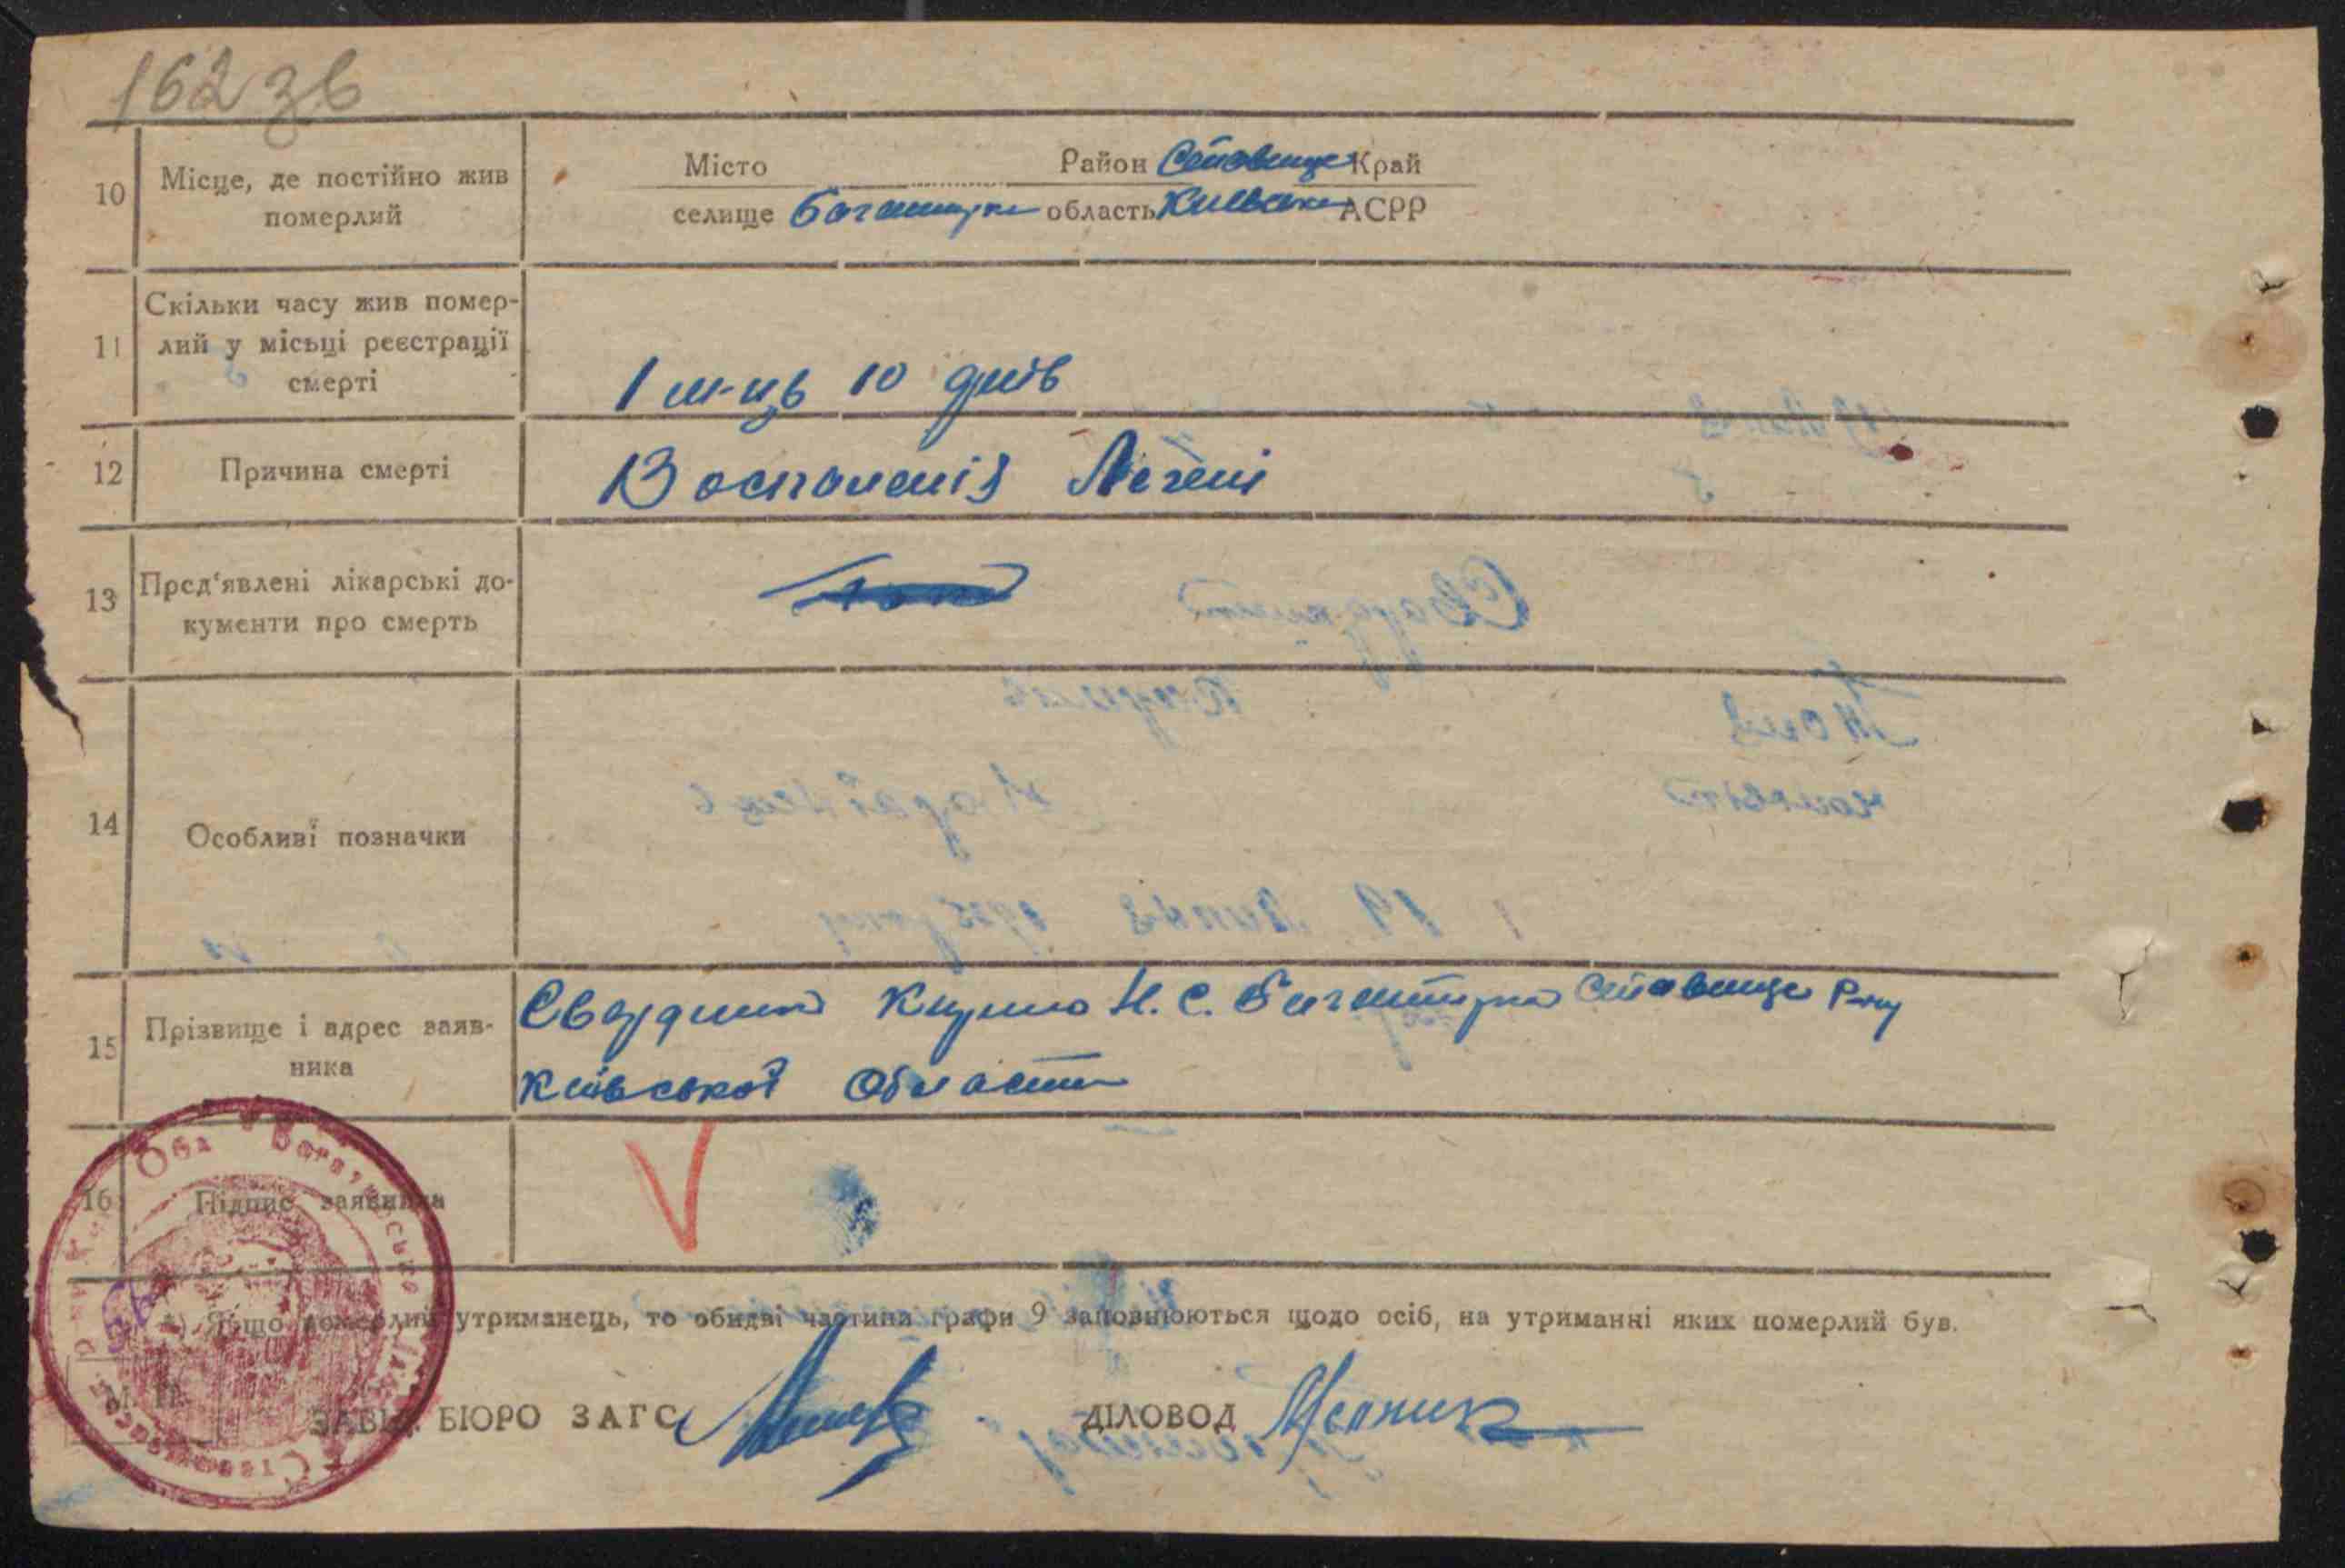 162 зв
10 Місце, де постійно жив померлий
Місто Район Ставище Край
селище Богатирка область Київська АСРР
11 Скільки часу жив помер-
лий у місьці реєстрації
смерті
1 м-ць 10 днів
12 Причина смерті Воспаленія Легені
13 Пред'явлені лікарські до-
кументи про смерть
14 Особливі позначки
15 Прізвище і адрес заяв-
ника
Кирило Н. С. Багатирка Ставище Р-ну
Київської Области
16 Підпис заявника
*) Якщо померлий утриманець, то обидві частини графи 9 заповнюються щодо осіб, на утриманні яких померлий був.
М. П.
ЗАВІД. БЮРО ЗАГС ДІЛОВОД Мельник